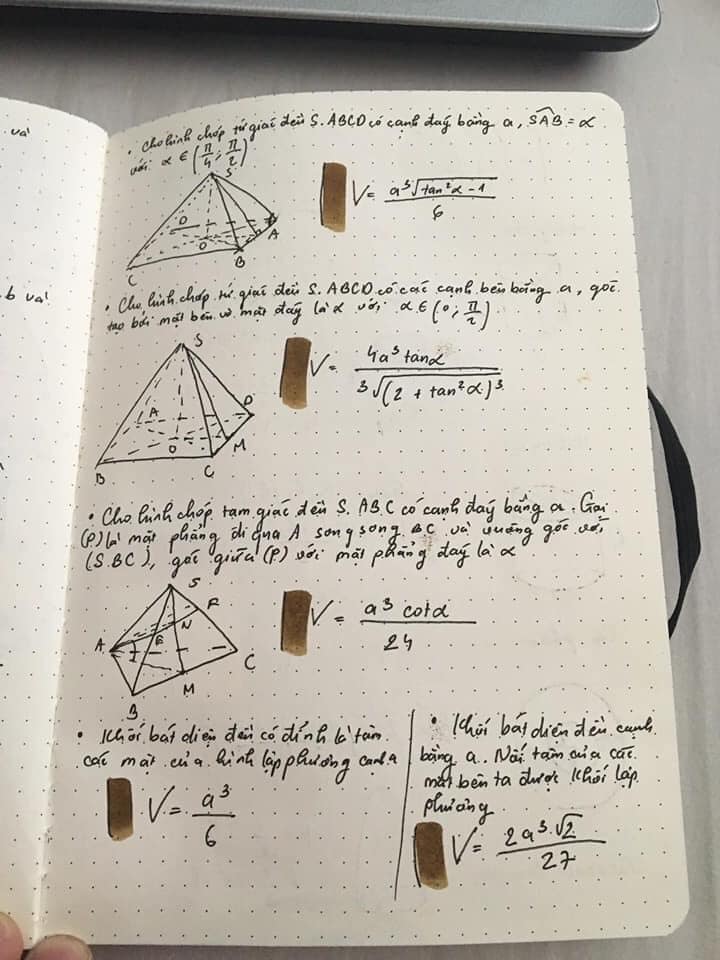 và
b và
• Cho hình chóp tứ giác đều S.ABCD có cạnh đáy bằng a, SAB = α
với α ∈ (π/4; π/2)
S
D
O
A
C
B
V = a³√(tan²α - 1) / 6
• Cho hình chóp tứ giác đều S.ABCD có các cạnh bên bằng a, góc
tạo bởi mặt bên và mặt đáy là α với α ∈ (0; π/2)
S
A
D
O
M
B
C
V = 4a³ tanα / 3√(2 + tan²α)³
• Cho hình chóp tam giác đều S.ABC có cạnh đáy bằng a. Gọi
(P) là mặt phẳng đi qua A song song BC và vuông góc với
(SBC), góc giữa (P) với mặt phẳng đáy là α
S
F
N
E
A
C
M
B
V = a³ cotα / 24
• Khối bát diện đều có đỉnh là tâm
các mặt của hình lập phương cạnh a
V = a³ / 6
• Khối bát diện đều cạnh
bằng a. Nối tâm của các
mặt bên ta được khối lập
phương
V = 2a³√2 / 27